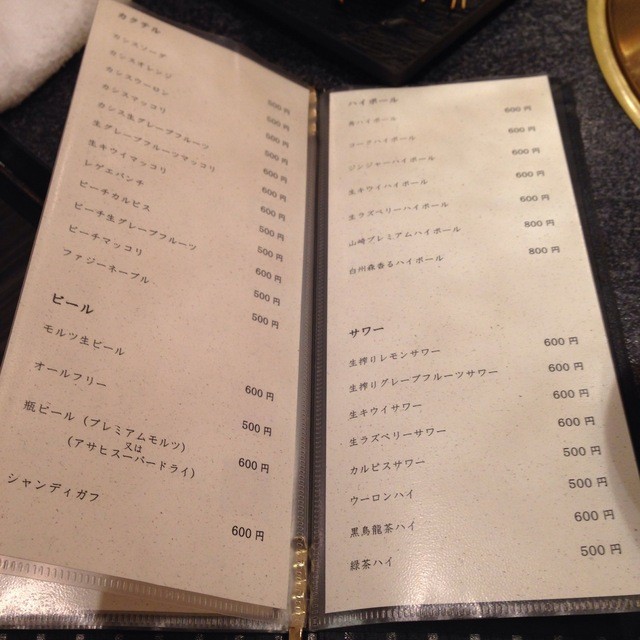 カクテル
カシスソーダ 500円
カシスオレンジ 500円
カシスウーロン 500円
カシスマッコリ 500円
カシス生グレープフルーツ 600円
生グレープフルーツマッコリ 600円
生キウイマッコリ 600円
レゲエパンチ 500円
ピーチカルピス 500円
ピーチ生グレープフルーツ 600円
ピーチマッコリ 500円
ファジーネーブル 500円
ビール
モルツ生ビール 600円
オールフリー 500円
瓶ビール（プレミアムモルツ） 600円
又は
（アサヒスーパードライ）
シャンディガフ 600円
ハイボール
角ハイボール 600円
コークハイボール 600円
ジンジャーハイボール 600円
生キウイハイボール 600円
生ラズベリーハイボール 600円
山崎プレミアムハイボール 800円
白州森香るハイボール 800円
サワー
生搾りレモンサワー 600円
生搾りグレープフルーツサワー 600円
生キウイサワー 600円
生ラズベリーサワー 600円
カルピスサワー 500円
ウーロンハイ 500円
黒烏龍茶ハイ 600円
緑茶ハイ 500円